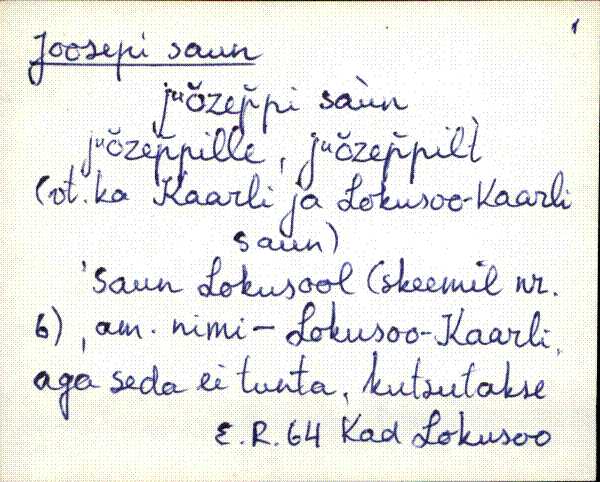 Joosepi saun
juŏzep̆pi saùn
juŏzep̆pille, juŏzep̆pilt̀
(vt. ka Kaarli ja Lokusoo-Kaarli
saun)
'saun Lokusool (skeemil nr.
6), am. nimi – Lokusoo-Kaarli,
aga seda ei tunta, kutsutakse
E.R. 64 Kad Lokusoo